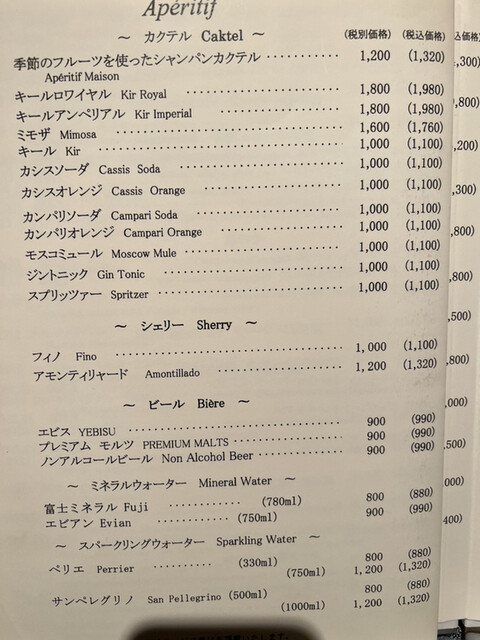 Apéritif
～ カクテル Caktel ～ (税別価格) (税込価格)
季節のフルーツを使ったシャンパンカクテル ············ 1,200 (1,320)
Apéritif Maison
キールロワイヤル Kir Royal ···················· 1,800 (1,980)
キールアンペリアル Kir Imperial ················ 1,800 (1,980)
ミモザ Mimosa ······························ 1,600 (1,760)
キール Kir ································ 1,000 (1,100)
カシスソーダ Cassis Soda ······················ 1,000 (1,100)
カシスオレンジ Cassis Orange ·················· 1,000 (1,100)
カンパリソーダ Campari Soda ···················· 1,000 (1,100)
カンパリオレンジ Campari Orange ················ 1,000 (1,100)
モスコミュール Moscow Mule ···················· 1,000 (1,100)
ジントニック Gin Tonic ························ 1,000 (1,100)
スプリッツァー Spritzer ························ 1,000 (1,100)
～ シェリー Sherry ～
フィノ Fino ································ 1,000 (1,100)
アモンティリャード Amontillado ················ 1,200 (1,320)
～ ビール Bière ～
エビス YEBISU ······························ 900 (990)
プレミアム モルツ PREMIUM MALTS ················ 900 (990)
ノンアルコールビール Non Alcohol Beer ············ 900 (990)
～ ミネラルウォーター Mineral Water ～
富士ミネラル Fuji ············ (780ml) 800 (880)
エビアン Evian ············ (750ml) 900 (990)
～ スパークリングウォーター Sparkling Water ～
ペリエ Perrier ·········· (330ml) 800 (880)
(750ml) 1,200 (1,320)
サンペレグリノ San Pellegrino (500ml) 800 (880)
(1000ml) 1,200 (1,320)
込価格)
,300)
,800)
,200)
,300)
,800)
,800)
,500)
,800)
,000)
,500)
,000)
400)